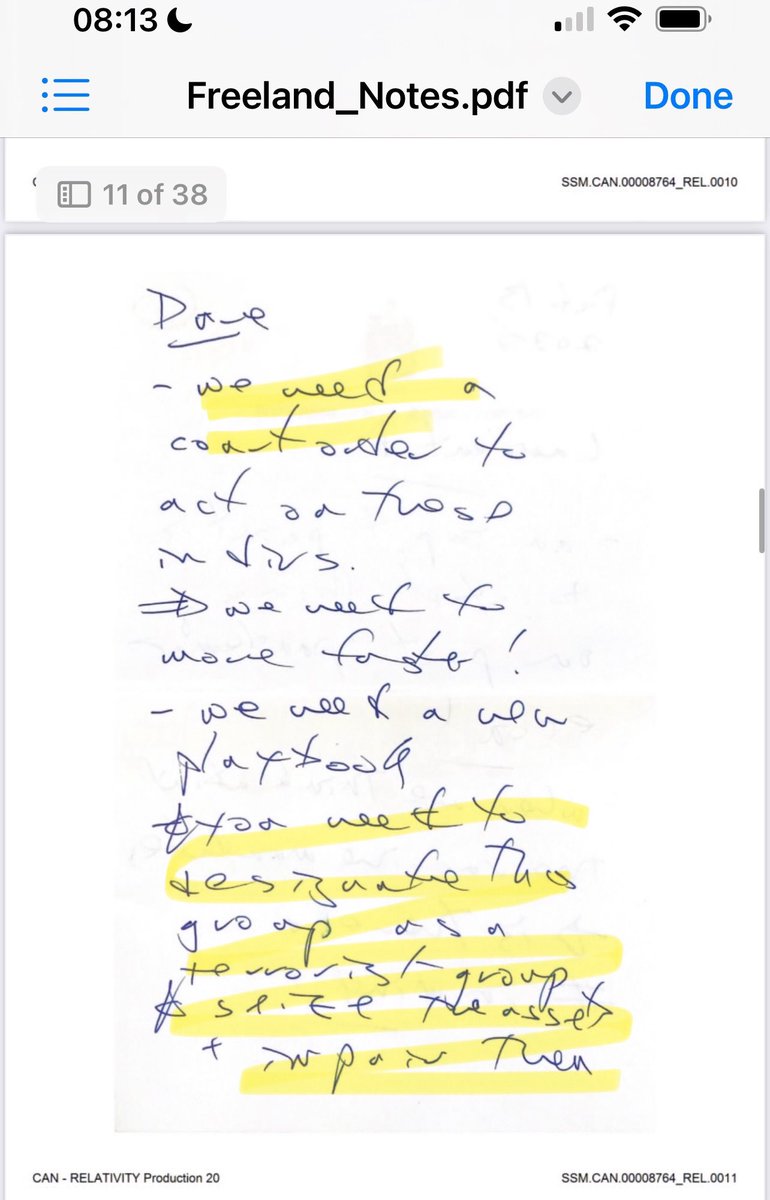 08:13
Freeland_Notes.pdf
Done
11 of 38
SSM.CAN.00008764_REL.0010
Dave
- we need a
court order to
act on those
indivs.
⇒ we need to
move faster!
- we need a new
playbook
you need to
designate this
group as a
terrorist group
seize the assets
+ impair them
CAN - RELATIVITY Production 20
SSM.CAN.00008764_REL.0011